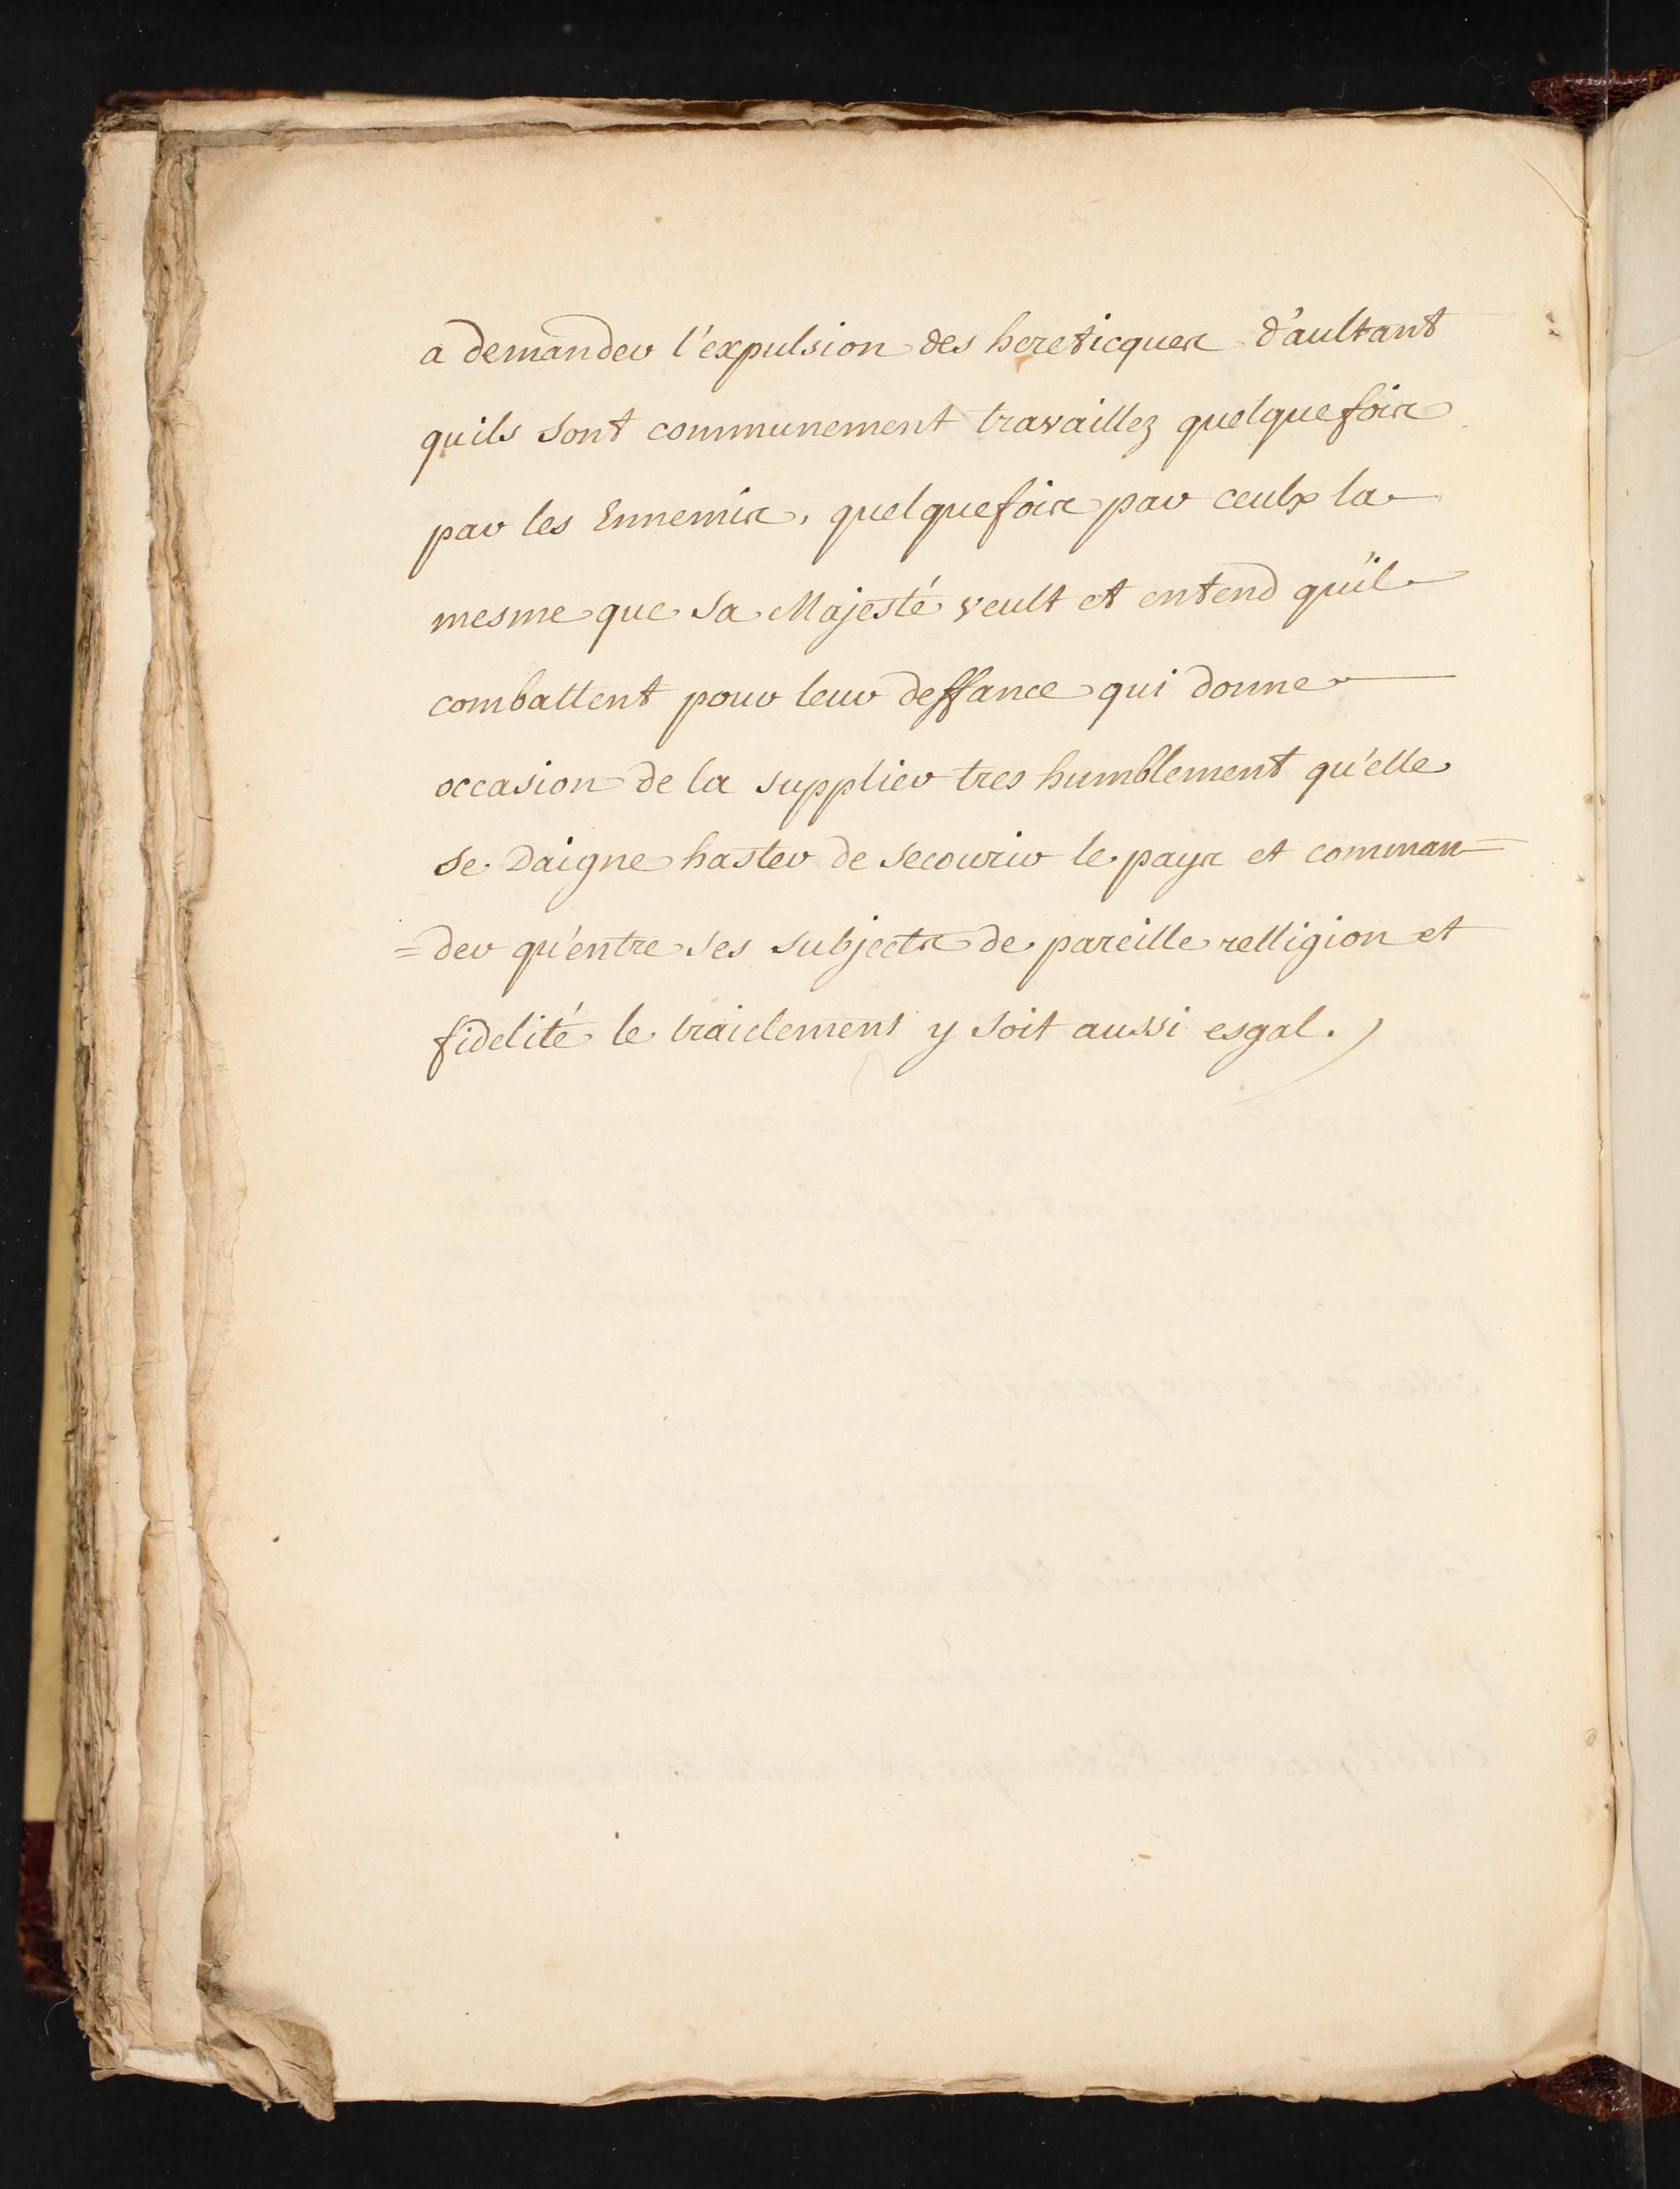 a demander l'expulsion des hereticques d'aultant
quils sont communement travaillez quelque fois
par les Ennemis, quelque fois par ceulx la
mesme que sa Majesté veult et entend qu'il
combattent pour leur deffance qui donne
occasion de la supplier tres humblement qu'elle
se daigne haster de secourir le pays et comman=
=der qu'entre ses subjects de pareille relligion et
fidelité le traictement y soit aussi esgal.